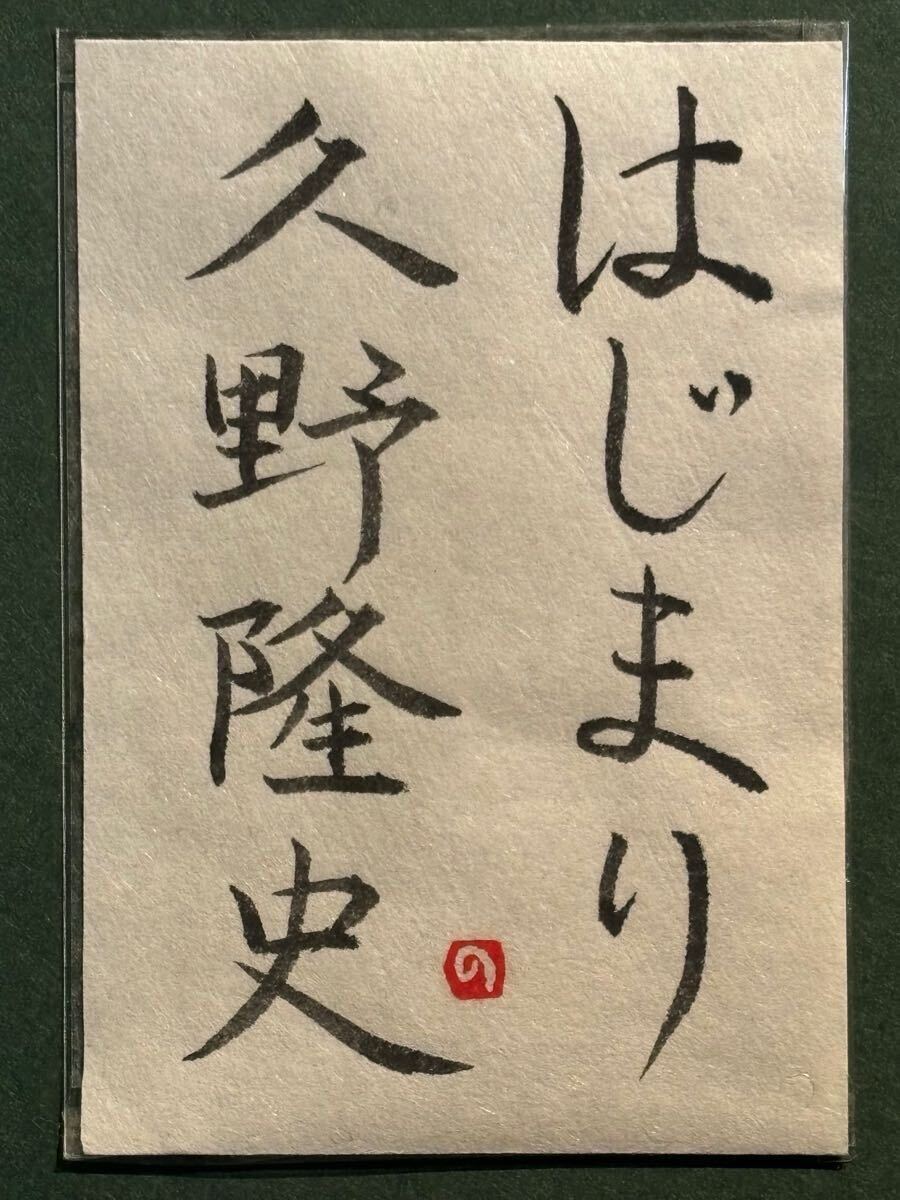 はじまり
久野隆史
の